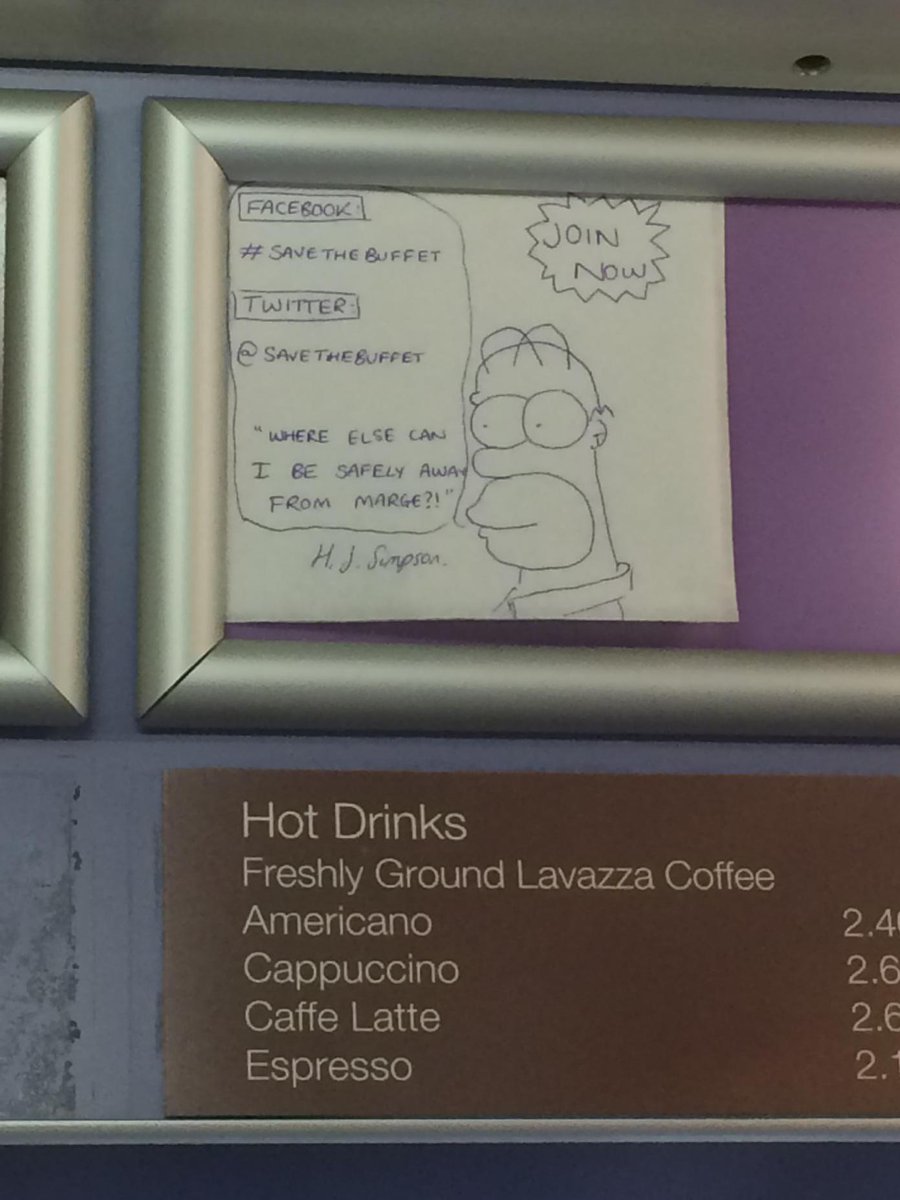 FACEBOOK:
# SAVETHEBUFFET
TWITTER:
@SAVETHEBUFFET
"WHERE ELSE CAN
I BE SAFELY AWAY
FROM MARGE?!"
H. J. Simpson.
JOIN
NOW
Hot Drinks
Freshly Ground Lavazza Coffee
Americano 2.4
Cappuccino 2.6
Caffe Latte 2.6
Espresso 2.1